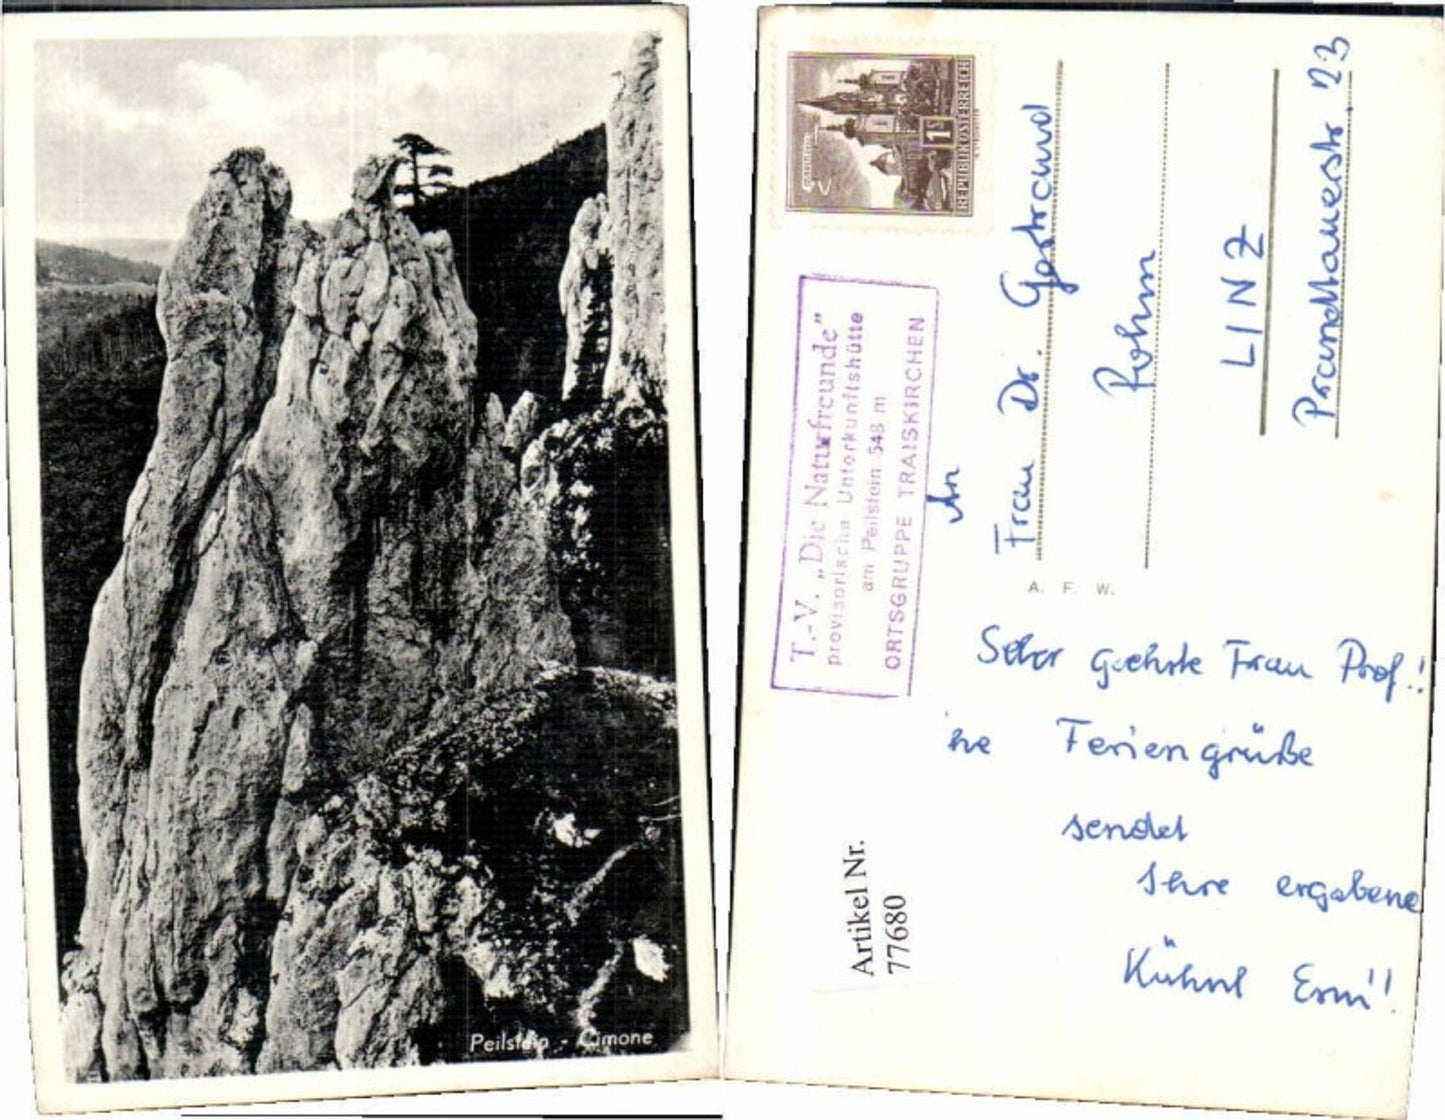 Peilstein - Cimone
REPUBLIK ÖSTERREICH
1S
MARIAZELL
T.-V. „Die Naturfreunde”
provisorische Unterkunftshütte
am Peilstein 548 m
ORTSGRUPPE TRAISKIRCHEN
An
Frau Dr. Gertraud
Rohm
LINZ
Prandtauerstr. 23
A. F. W.
Sehr geehrte Frau Prof.!
Feriengrüße
sendet
Ihre ergebene
Kühnl Erni!
Artikel Nr.
77680